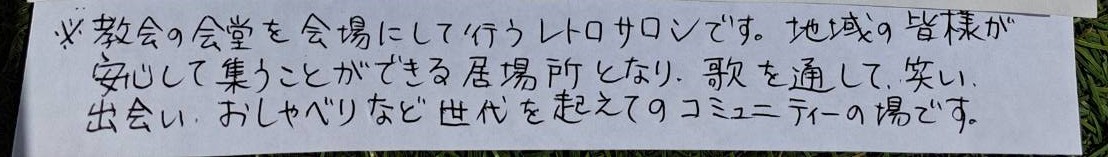 ※教会の会堂を会場にして行うレトロサロンです。地域の皆様が
安心して集うことができる居場所となり、歌を通して、笑い、
出会い、おしゃべりなど世代を起えてのコミュニティーの場です。